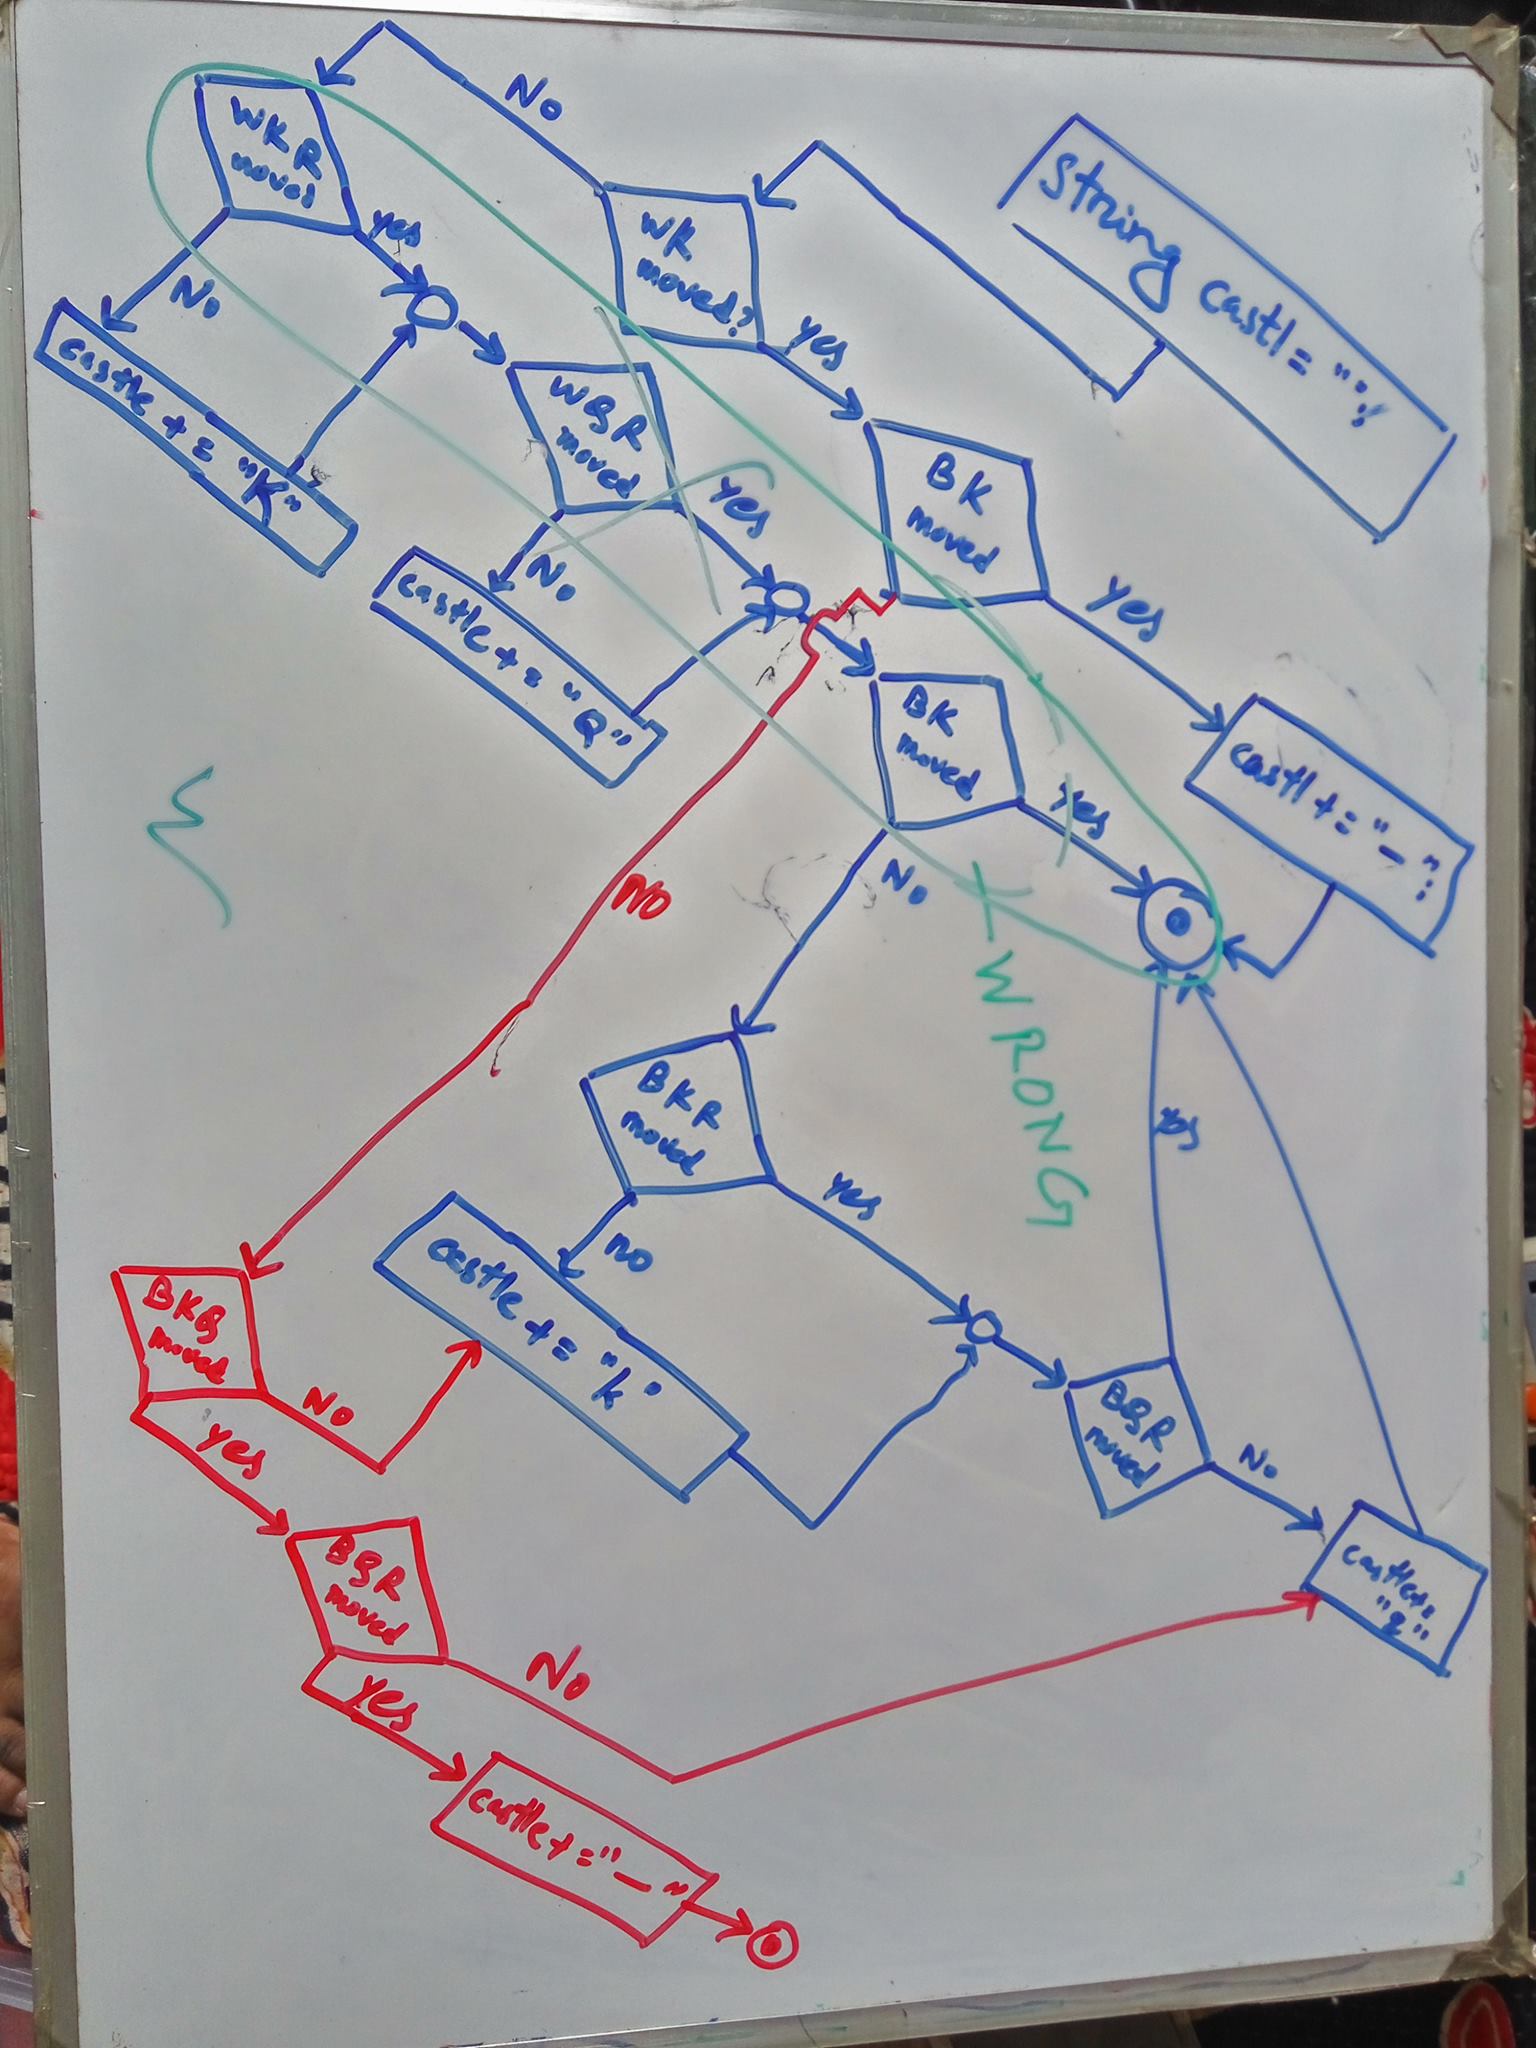 string castl = "";
No
WK
moved?
yes
WKR
moved
yes
No
castle += "K"
WQR
moved
yes
No
castle += "Q"
BK
moved
yes
castl += "-";
BK
moved
yes
No
NO
WRONG
BKR
moved
yes
no
castle += "k"
yes
BQR
moved
No
castle+=
"q"
BKQ
moved
No
yes
BQR
moved
No
yes
castle+="-"